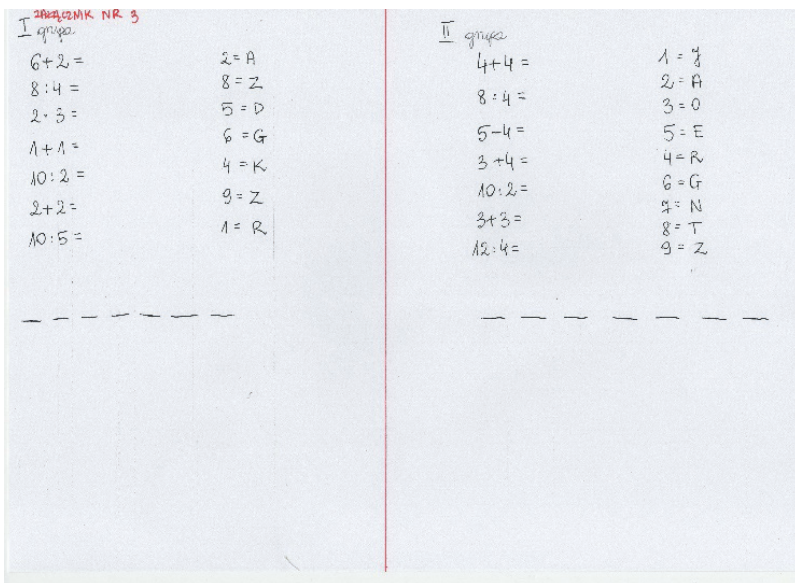 ZAŁĄCZNIK NR 3
I grupa
6+2=
8:4=
2·3=
1+1=
10:2=
2+2=
10:5=
2=A
8=Z
5=D
6=G
4=K
9=Z
1=R
II grupa
4+4=
8:4=
5-4=
3+4=
10:2=
3+3=
12:4=
1=J
2=A
3=O
5=E
4=R
6=G
7=N
8=T
9=Z